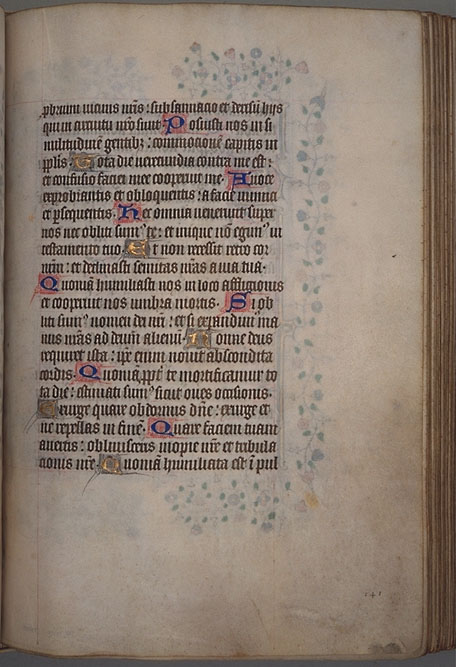 pbrium vicinis nr̄is : subsannacio et derisū hijs
qui in circuitu nr̄o sunt. Posuisti nos in si
militudinē gentibꝫ : commotionē capitis in
pplīs. Tota die verecundia contra me est :
et confusio faciei mee cooperuit me. A voce
exprobrantis et obloquentis : a facie inimici
et psequentis. Hec omnia venerunt super
nos nec obliti sumꝰ te : et inique nō egimꝰ in
testamento tuo. Et non recessit retro cor
nrm̄ : et declinasti semitas nr̄as a via tua.
Quoniā humiliasti nos in loco afflictionis
et cooperuit nos umbra mortis. Si ob
liti sumꝰ nomen dei nr̄i : et si expandimꝰ ma
nus nr̄as ad deum alienū. Nonne deus
requiret ista : ip̄e enim novit abscondita
cordis. Quoniā ppt̄ te mortificamur to
ta die : estimati sumꝰ sicut oves occisionis.
Exurge quare obdormis dn̄e : exurge et
ne repellas in finē. Quare faciem tuam
avertis : oblivisceris inopie nr̄e et tribula
cionis nr̄e. Quoniā humiliata est ī pul
141